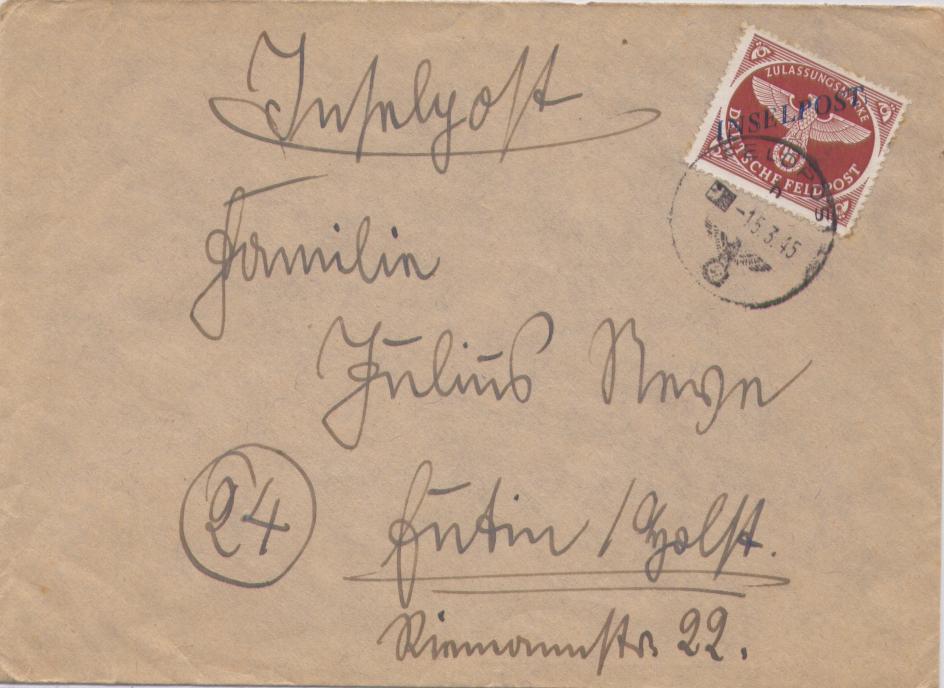 Inselpost
ZULASSUNGSMARKE
INSELPOST
DEUTSCHE FELDPOST
FELDPOS
-15.3.45
Familie
Julius Neve
24 Eutin / Holst.
Riemannstr. 22.